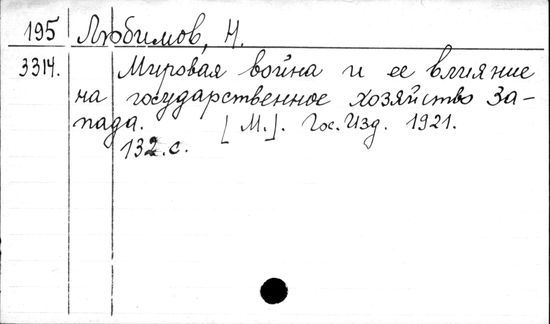 195 Любимов, Н.
3314. Мировая война и ее влияние
на государственное хозяйство За-
пада. [М.]. Гос. Изд. 1921.
132 с.